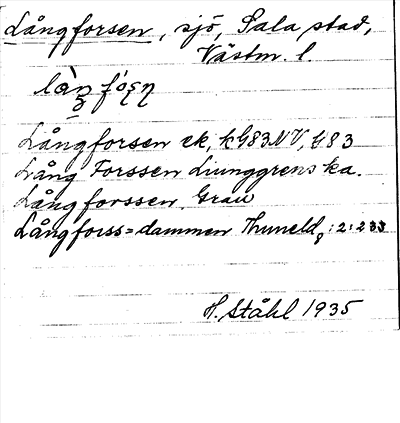 Långforsen, sjö, Sala stad,
Västm. l.
Långforsen ek, kG83NV, G83
Lång Forssen Liunggrens ka.
Långforssen Grau
Långforss=dammen Thuneld, :2:233
H. Ståhl 1935